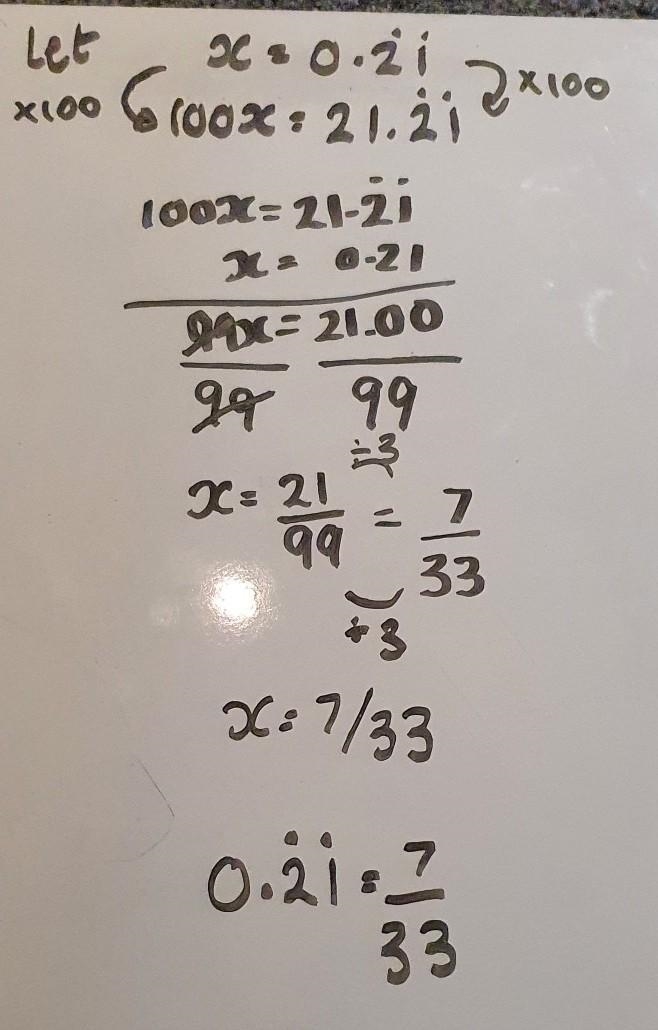 Let x = 0.2̇1̇
x100 100x = 21.2̇1̇ x100
100x = 21.2̇1̇
x = 0.21
99x = 21.00
99 99
÷3
x = 21/99 = 7/33
÷3
x = 7/33
0.2̇1̇ = 7/33